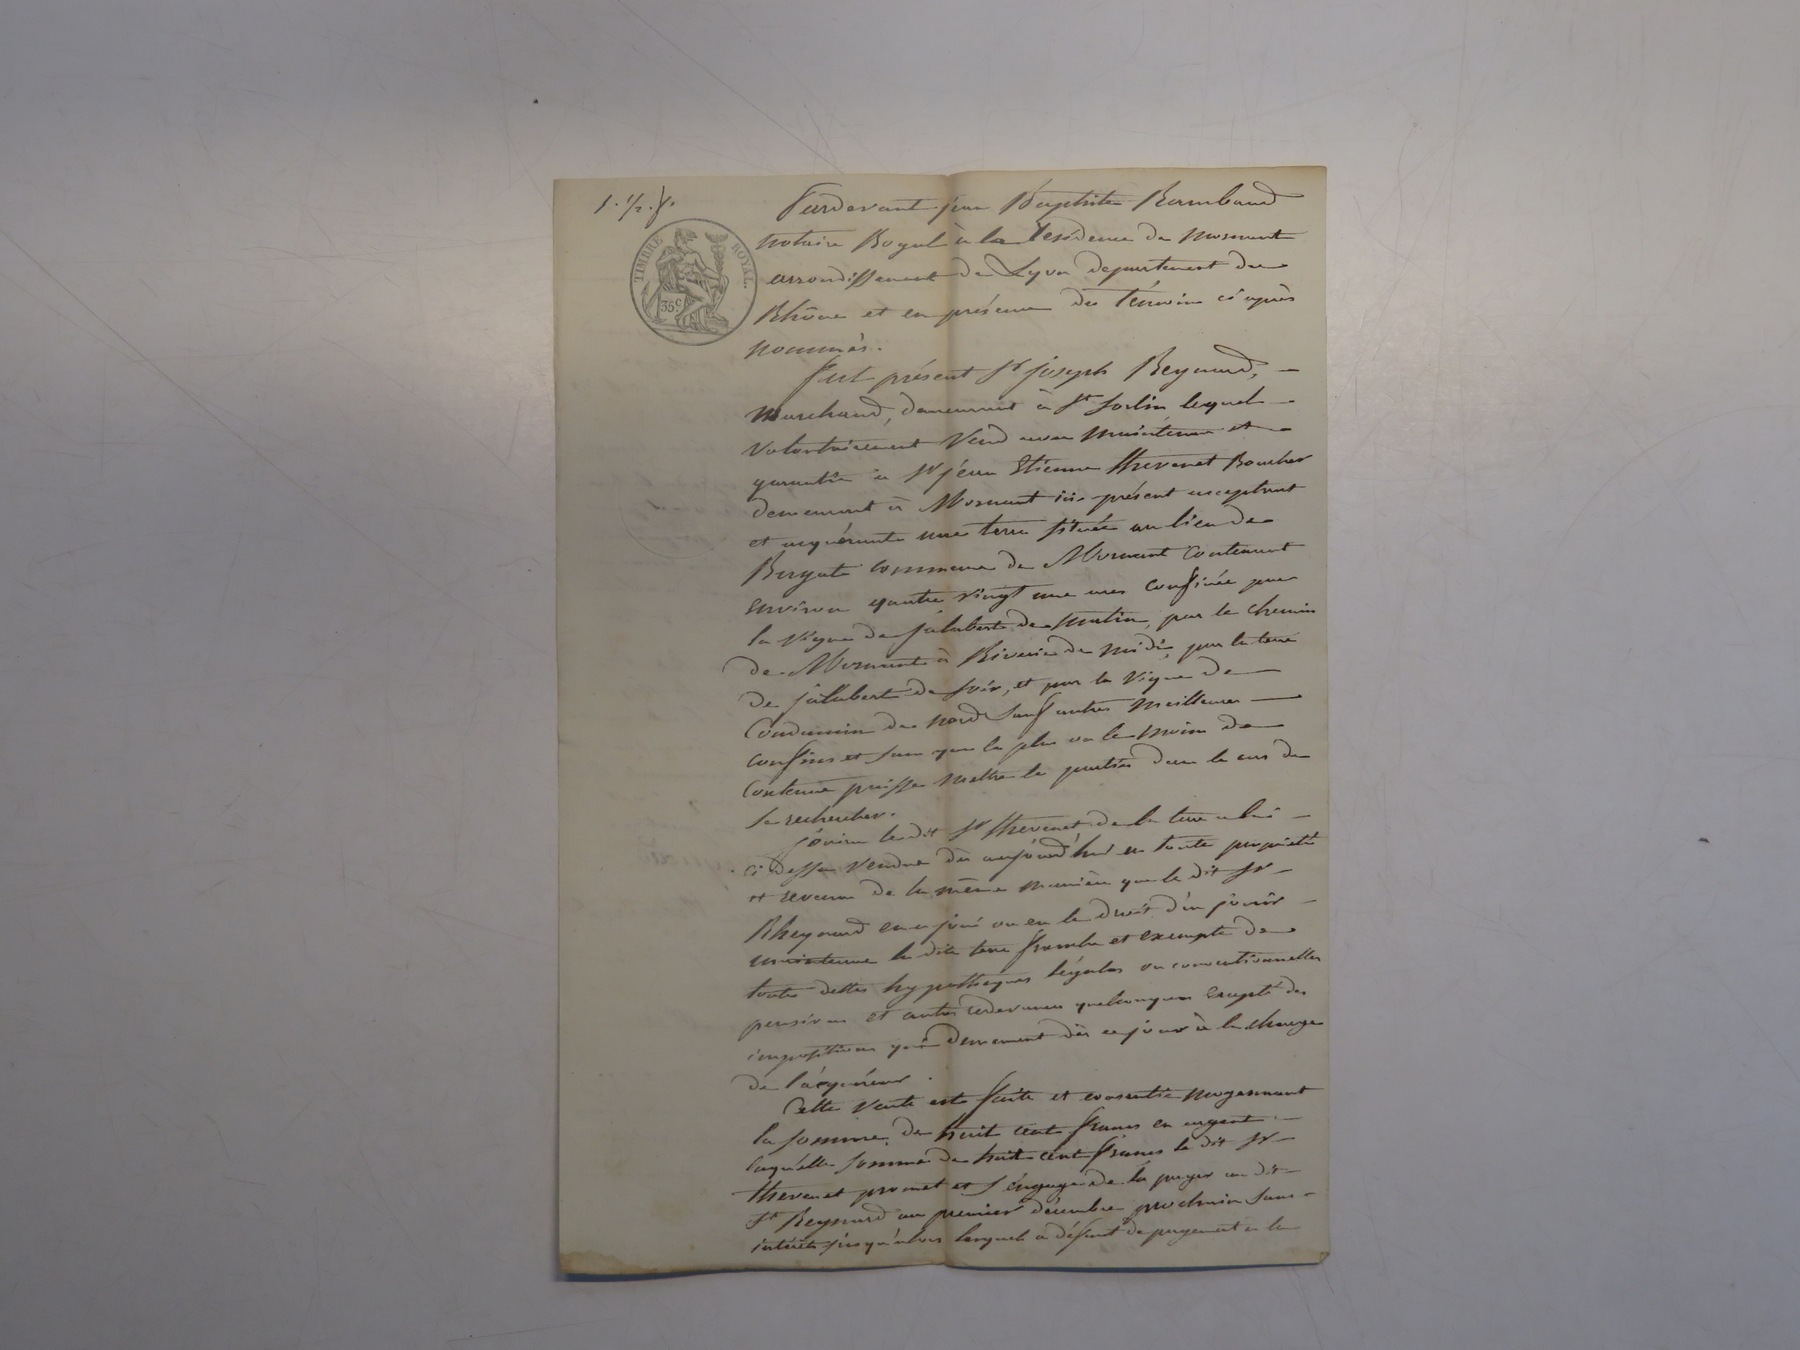 1. 1/2. f.
TIMBRE ROYAL.
35c
Pardevant jean Baptiste Rambaud
notaire Royal à la résidence de Mornant
arrondissement de Lyon departement du
Rhône et en présence des témoins ci après
nommés.
Fut présent Sr joseph Reynard,
Marchand, demeurant à St Sorlin lequel
volontairement vend avec maintenue et
garantie à Sr jean Etienne Thevenet Boucher
demeurant à Mornant ici présent acceptant
et acquérante une terre située au lieu de
commune de Mornant contenant
environ quatre vingt une ares confinée par
la vigne de jalabert de matin, par le chemin
de Mornant à Riverie de midi, par la terre
de jallabert de soir, et par la vigne de
Condamin de nord sauf autres meilleures
confins et sans que le plus ou le moins de
contenue puisse mettre les parties dans le cas de
se rechercher.
jouira le dit Sr Thevenet de la terre a lui
ci dessus vendue dès aujourd'hui en toute propriété
et revenu de la même manière que le dit Sr
Rheynard en a joui ou eu le droit d'en jouir
maintenue la dite terre franche et exempte de
toutes dettes hypothèques légales ou conventionnelles
pensions et autres redevances quelconques excepté des
impositions qui demeurent dès ce jour à la charge
de l'acquéreur.
Cette vente est faite et consentie moyennant
la somme de huit cent francs en argent
laquelle somme de huit cent francs le dit Sr
thevenet promet et s'engage de la payer au dit
Sr Reynard au premier décembre prochain sans
intérêts jusqu'alors lesquels a défaut de payement a la